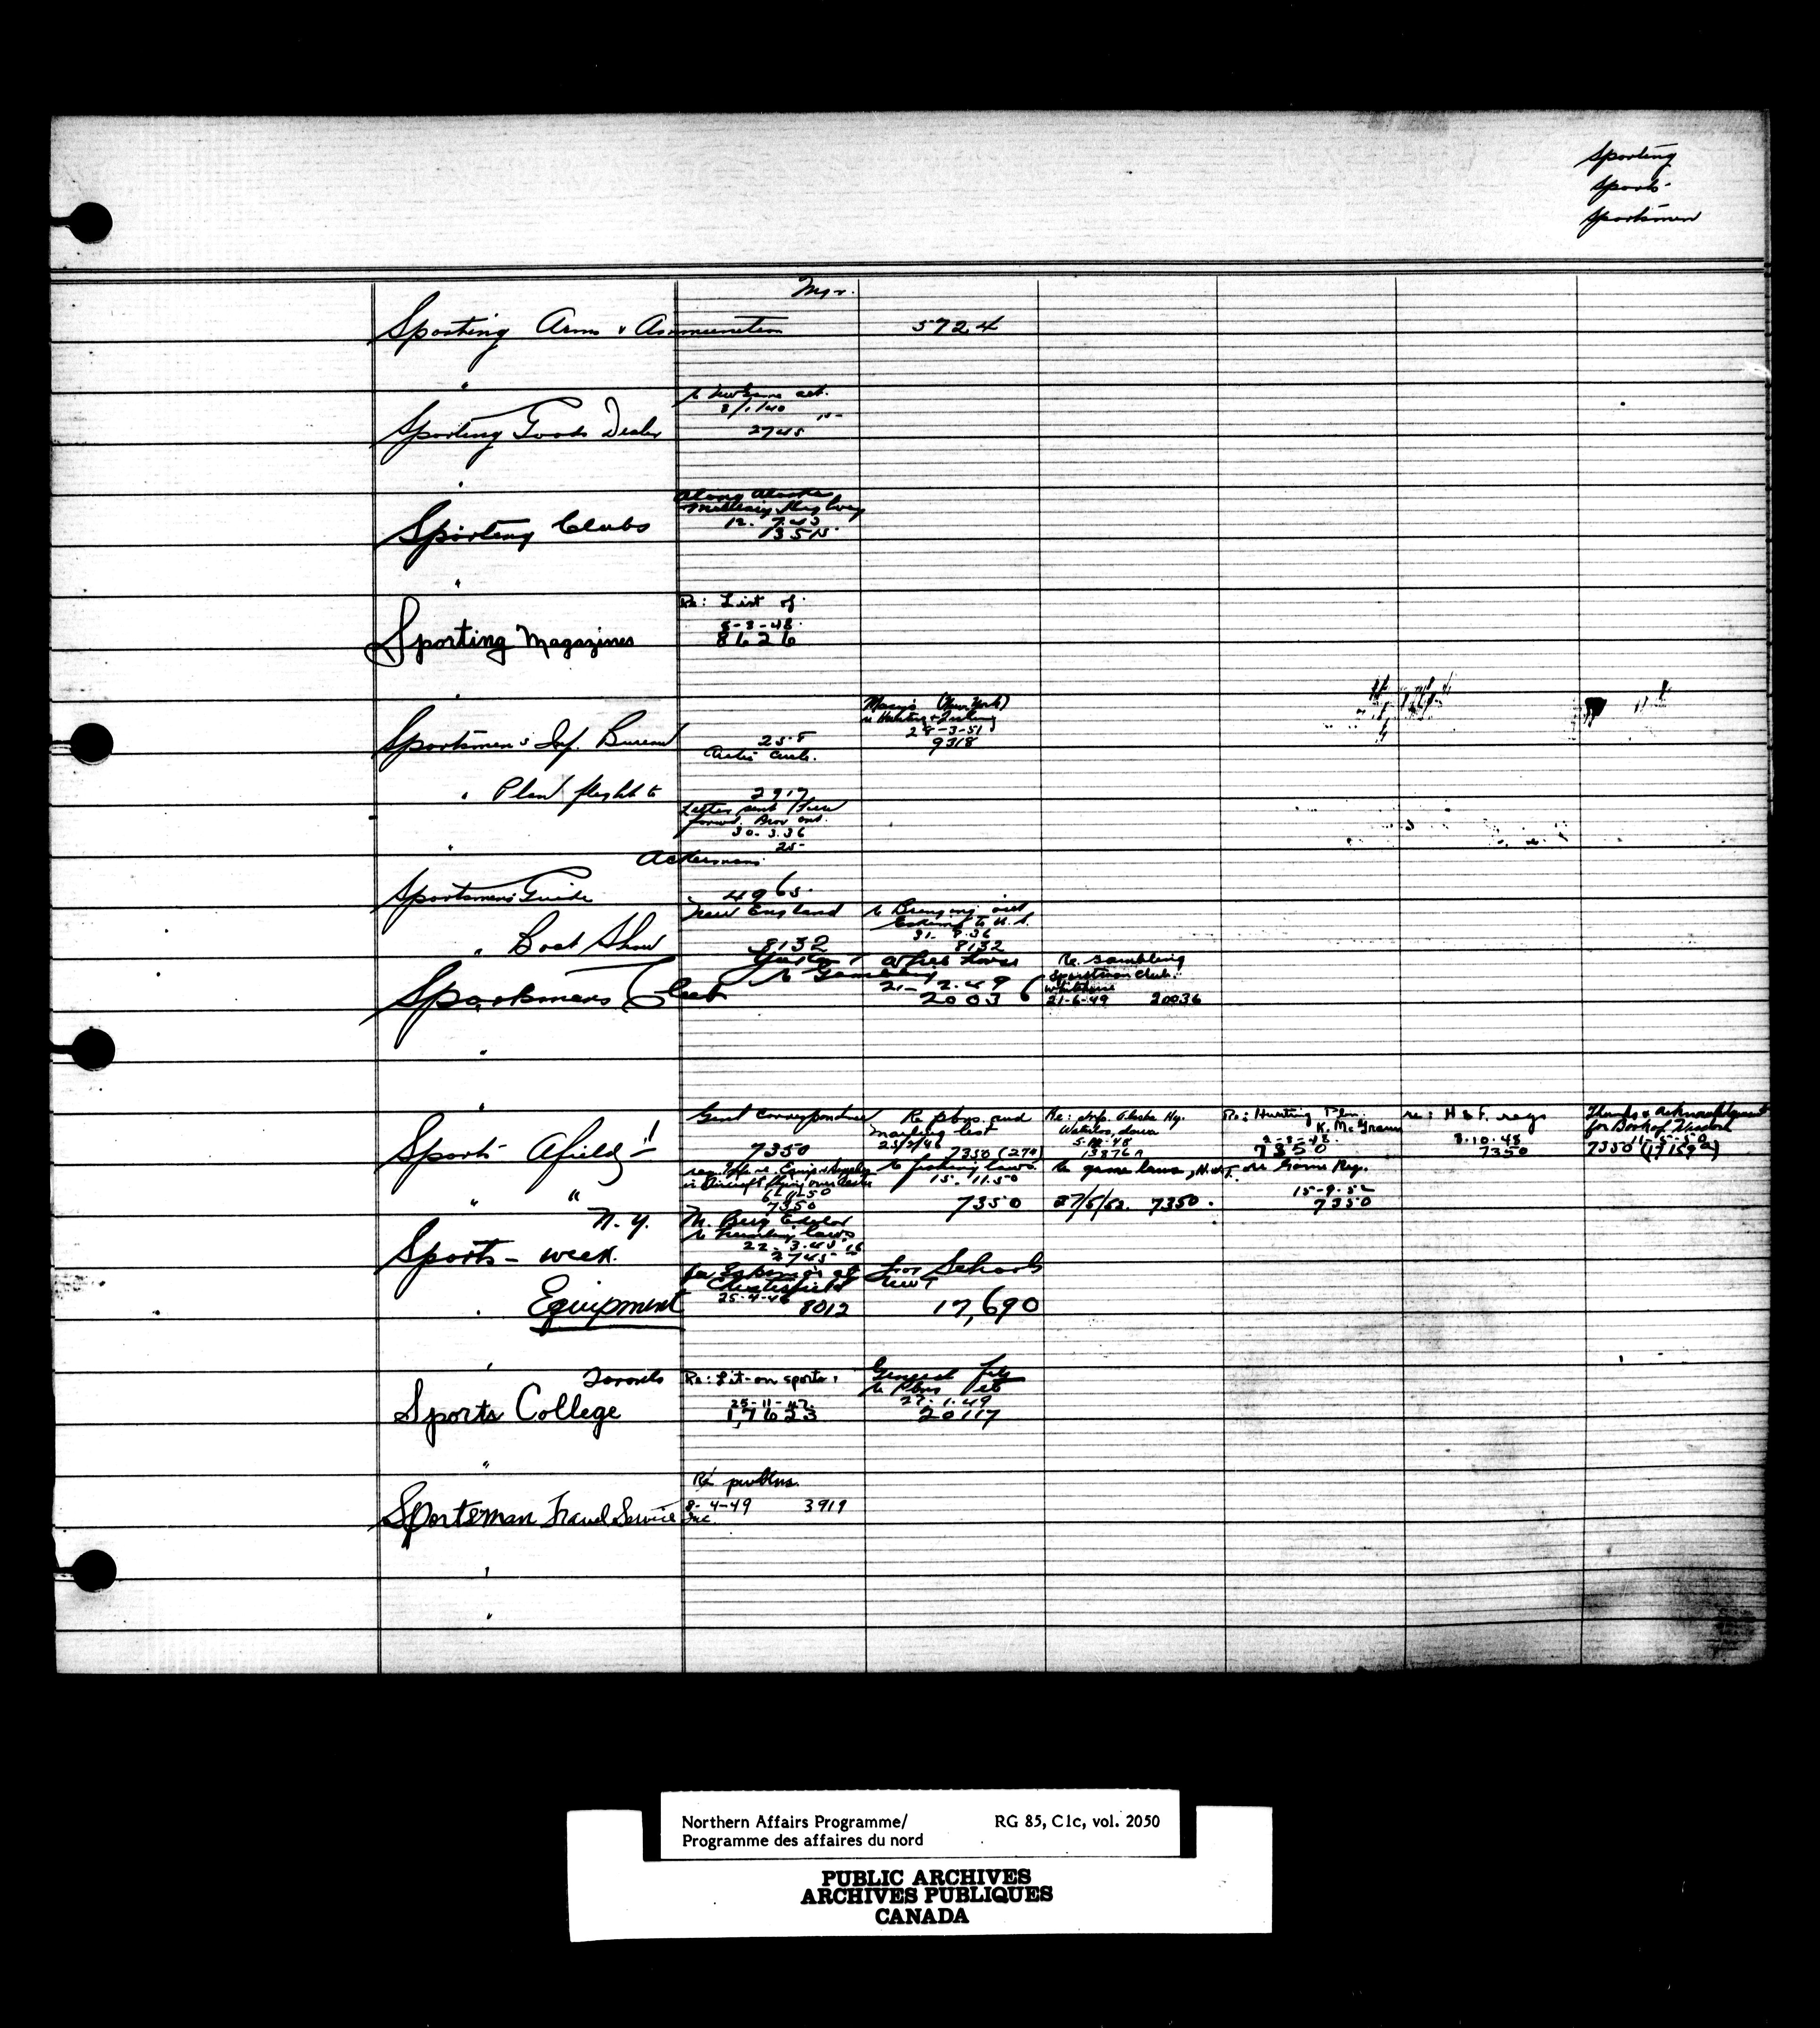 Sporting
Sports-
Sportsmen
Mgr.
Sporting Arms & Ammunition 5724
"
re New Game act.
8/1/40
Sporting Goods Dealer 2745
"
Along Alaska
Military Highway
12. 7.43
Sporting Clubs 13515
"
Re: List of
8-3-48.
Sporting Magazines 8626
"
Macy's (New York)
re Hunting & Fishing
28-3-51
9318
Sportsmen's Inf. Bureau 258
Arctic Circle.
" Plan flight to 2917
Letter sent
30-3.36
25-
"
Ackermans
Sportsmen's Guide 4965.
New England re Bringing out
Eskimo to U.S.
31- 8.36
" Boat Show 8132 8132
Yukon & White Horse
re Gambling
21-12.49
Sportsmens Club 20036
Re. Gambling
Sportsman Club.
Whitehorse
21-6-49 20036
"
"
Genl correspondence Re pboys. and Re: Inf. Alaska Hy. Re: Hunting Plm. re: H & F. regs
mailing list Waterloo, Iowa K. McGrann
for Book of Wisdom
23/2/46 5-10-48 2-3-48. 8.10.48 11-5-50
Sports Afield 7350 7350 (270) 13876A 7350 7350 7350 (17159A)
re fishing laws. Re game laws, N.W.T. re Game Reg.
in Aircraft flying over Arctic 15. 11.50
6-11-50 15-9-52
" " 7350 7350 27/5/52. 7350. 7350
N.Y. M. Berg Editor
re hunting laws
22.3.45
Sports - week. 2745
for Eskimos at For Schools
Chesterfield NWT
25-4-46
" Equipment 8012 17,690
"
Toronto Re: Lit-on sports. General File
25-11-47. 27.1.49
Sports College 17623 20117
"
Re publns.
8-4-49 3919
Sportsman Travel Service Inc.
"
"
Northern Affairs Programme/ RG 85, C1c, vol. 2050
Programme des affaires du nord
PUBLIC ARCHIVES
ARCHIVES PUBLIQUES
CANADA